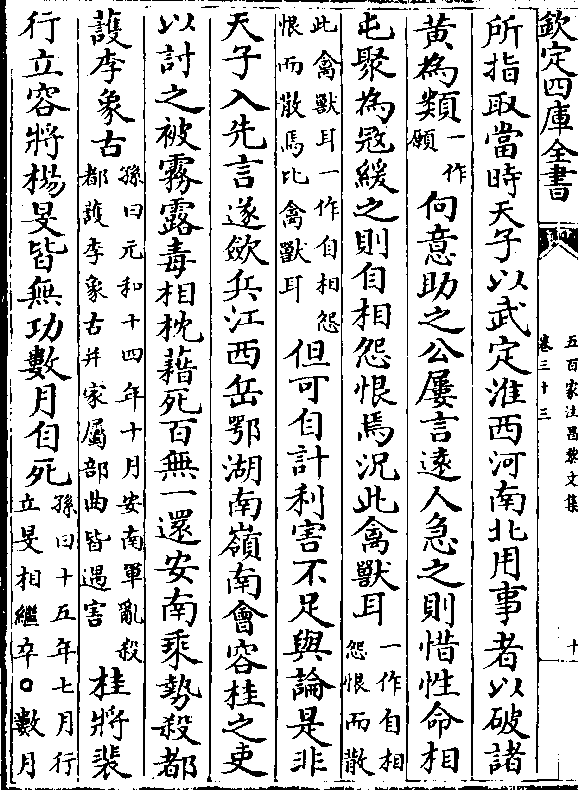 欽定四庫全書
五百家注昌黎文集
卷三十三
十
所指取當時天子以武定淮西河南北用事者以破諸
黃為類一作願向意助之公屢言遠人急之則惜性命相
屯聚為寇緩之則自相怨恨焉況此禽獸耳一作自相怨恨而散
此禽獸耳一作自相怨恨而散焉比禽獸耳但可自計利害不足與論是非
天子入先言遂斂兵江西岳鄂湖南嶺南會容桂之吏
以討之被霧露毒相枕藉死百無一還安南乘勢殺都
護李象古孫曰元和十四年十月安南軍亂殺都護李象古并家屬部曲皆遇害桂將裴
行立容將楊旻皆無功數月自死孫曰十五年七月行立旻相繼卒○數月